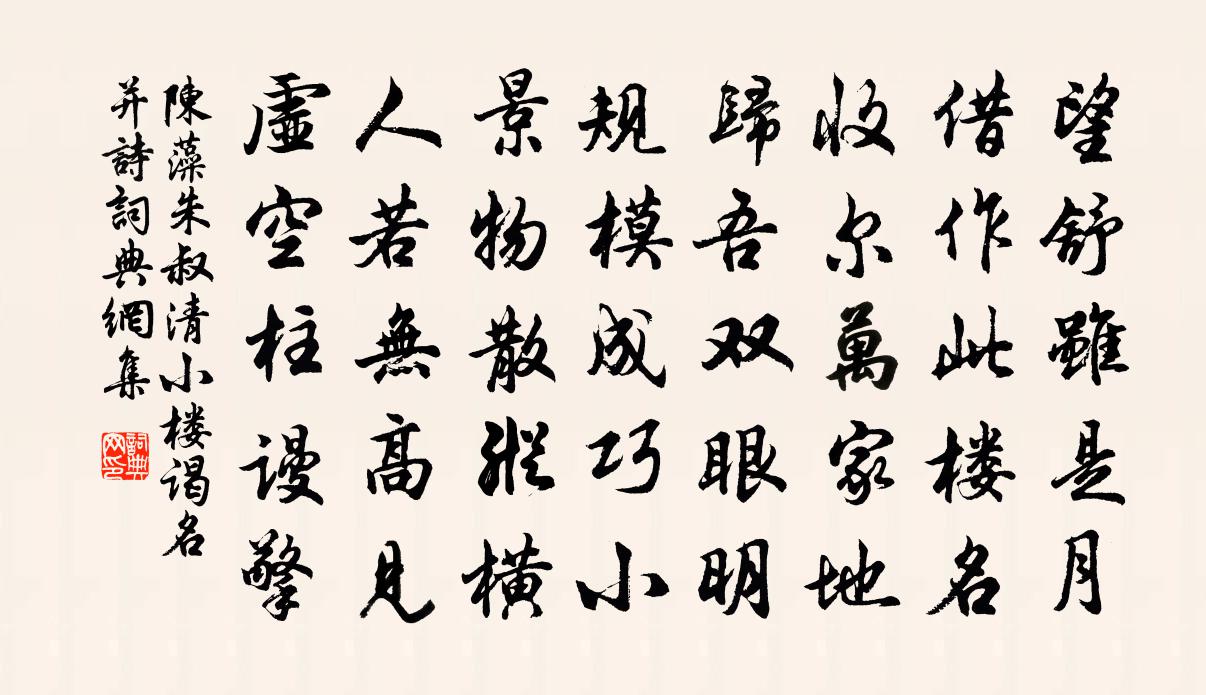 望舒雖是月
借作此楼名
收尔萬家地
歸吾双眼明
規模成巧小
景物散縱橫
人若無高見
虛空柱謾擎
陳藻朱叔清小楼謁名
并詩詞典網集
詞典网印